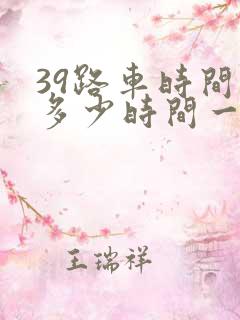 39路車時間
多少時間一
王瑞祥